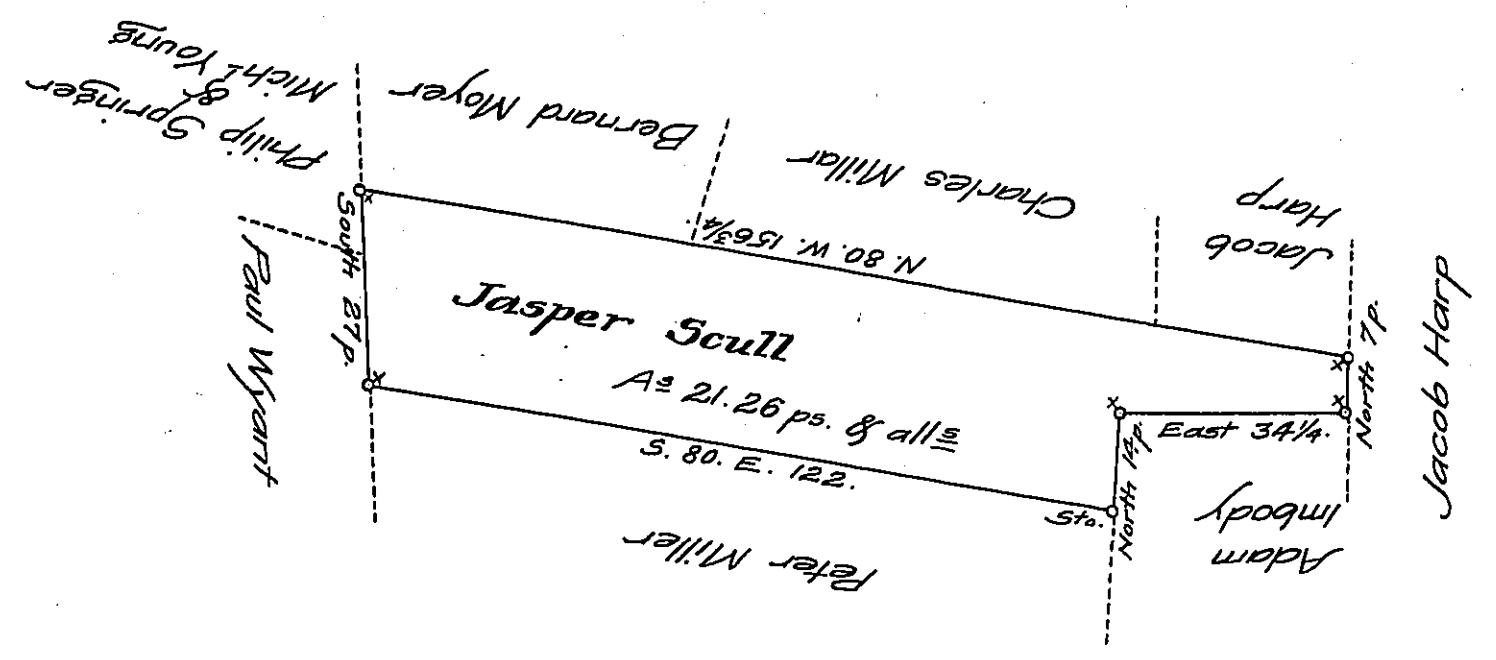 Philip Springer
&
Mich! Young
Bernard Moyer
Charles Millar
Jacob
Harp
Jacob Harp
N. 80. W. 156¾
South 27p.
Paul Wyant
Jasper Scull
As 21. 26 ps. & alls
S. 80. E. 122.
Sto.
North 14p.
East 34¼.
North 7p.
Adam
Imbody
Peter Miller